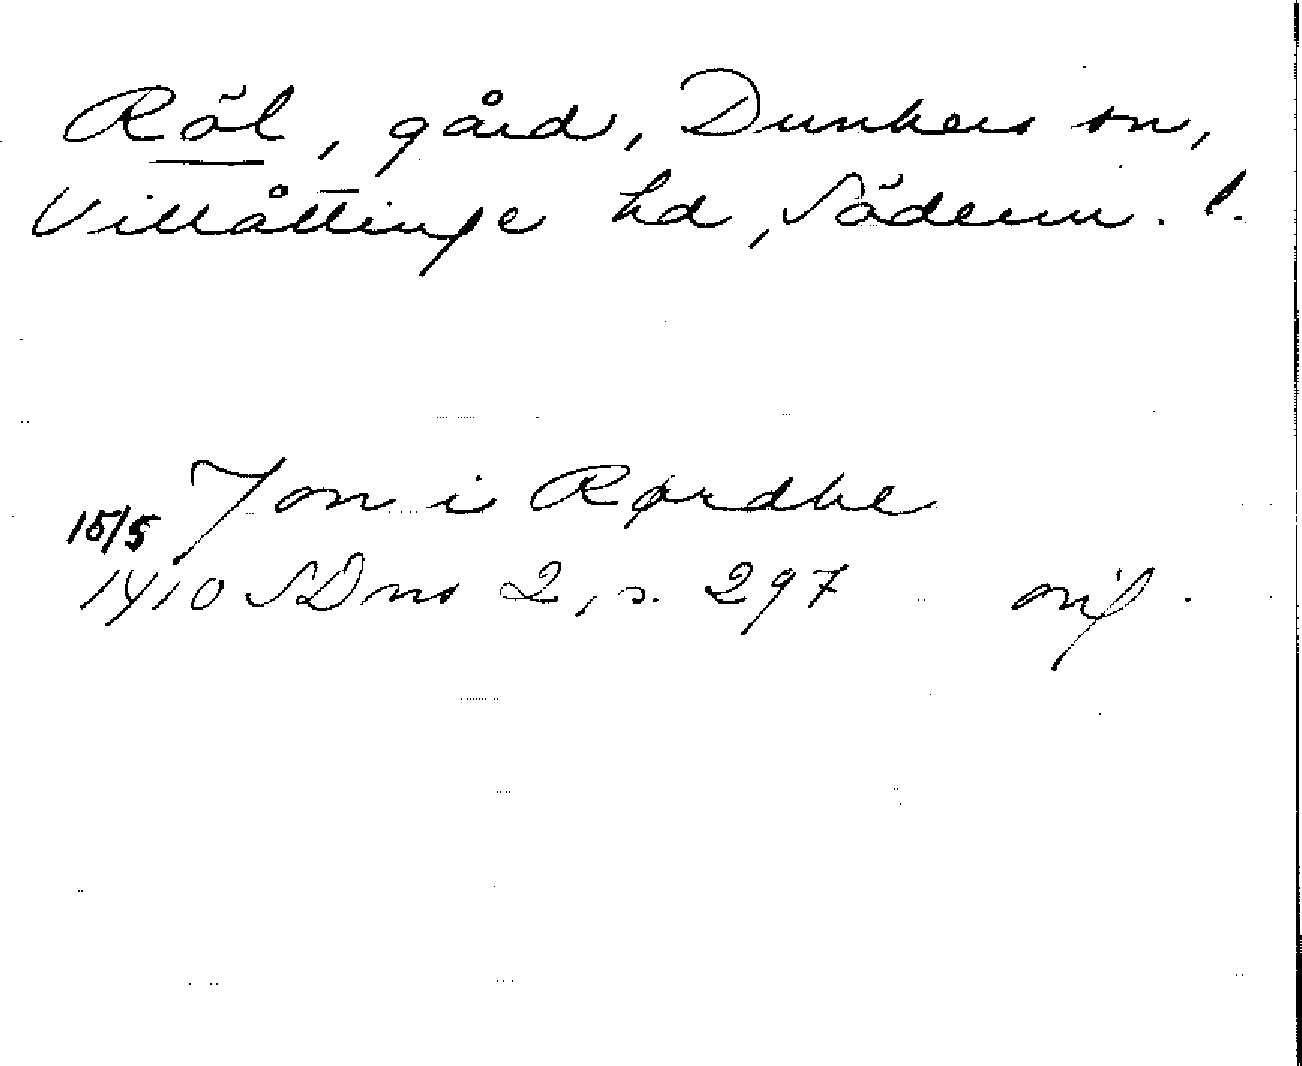 Röl, gård, Dunkers sn,
Villåttinge hd, Söderm. l.
Jon i Rørdhe
15/5
1410 SDns 2, s. 297 orig.